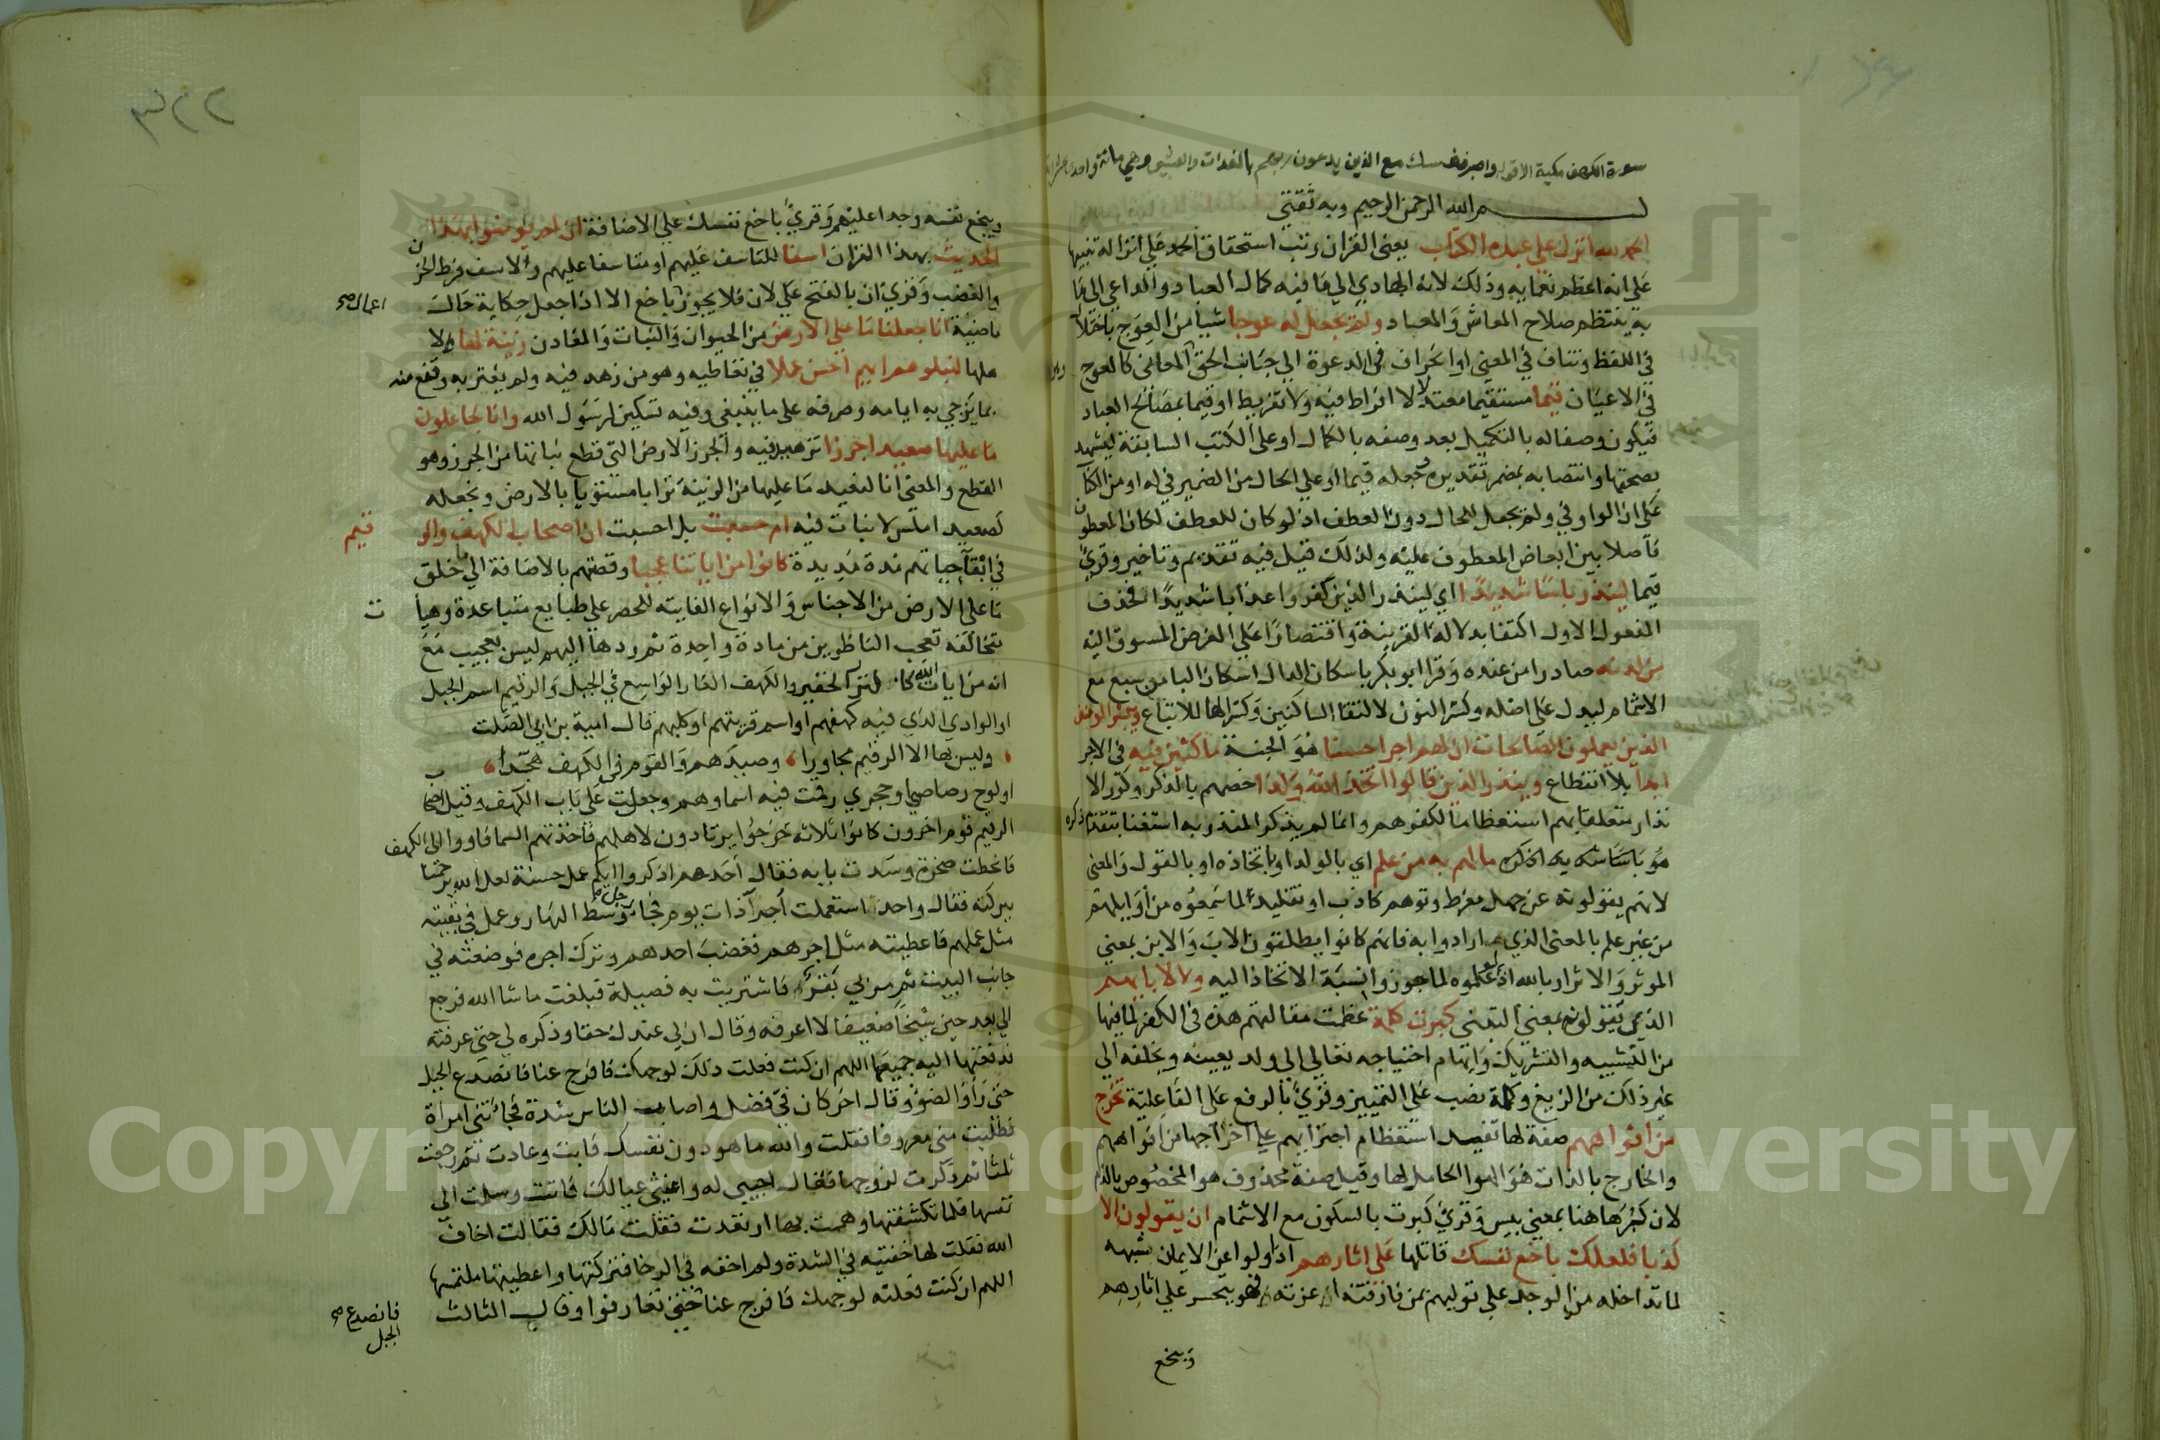 سورة الكهف مكية الا قوله واصبر نفسك مع الذين يدعون ربهم بالغدات والعشي وهي مائة واحد عشر اية
بسم الله الرحمن الرحيم وبه ثقتي
الحمد لله الذي انزل علي عبده الكتاب يعني القران رتب استحقاق الحمد علي انزاله تنبيها
علي انه اعظم نعمايه وذلك لانه الهادي الي ما فيه كمال العباد والداعي الي ما
به ينتظم صلاح المعاش والمعاد ولم يجعل له عوجا شيأ من العوج باختلال
في اللفظ وتناف في المعني او انحراف في الدعوة الي جناب الحق وهو في المعاني كالعوج
في الاعيان قيما مستقيما معتدلا لا افراط فيه ولا تفريط او قيما بمصالح العباد
فيكون وصفا له بالتكميل بعد وصفه بالكمال او علي الكتب السابقة ليشهد
بصحتها وانتصابه بمضمر تقديره وجعله قيما او علي الحال من الضمير في له او من الكتاب
علي ان الواو في ولم يجعل للحال دون العطف اذ لو كان للعطف لكان المعطوف
فاصلا بين ابعاض المعطوف عليه ولذلك قيل فيه تقديم وتاخير وقري
قيما لينذر باسا شديدا اي لينذر الذين كفروا عذابا شديدا فحذف
المفعول الاول اكتفا بدلالة القرينة واقتصارا علي الغرض المسوق اليه
من لدنه صادرا من عنده وقرا ابو بكر باسكان الدال اسكان البا من سبع مع
الاشمام ليدل علي اصله وكسر النون لالتقا الساكنين وكسر الها للاتباع ويبشر المومنين
الذين يعملون الصالحات ان لهم اجرا حسنا هو الجنة ماكثين فيه في الاجر
ابدا بلا انقطاع وينذر الذين قالوا اتخذ الله ولدا خصهم بالذكر وكرر الا
نذار متعلقا بهم استعظاما لكفرهم وانما لم يذكر المنذر به استغنا بتقدم ذكره
ما لهم به من علم اي بالولد او باتخاذه او بالقول والمعني
لانهم يقولونه عن جهل مفرط وتوهم كاذب او تقليد لما سمعوه من اوايلهم
من غير علم بالمعني الذي ارادوا به فانهم كانوا يطلقون الاب والابن بمعني
الموثر والاثر او بالله اذ لو علموه لما جوزوا نسبة الاتخاذ اليه ولا لابايهم
الذين تقولوه بمعني التبني كبرت كلمة عظمت مقالتهم هذه في الكفر لما فيها
من التشبيه والتشريك وايهام احتياجه تعالي الي ولد يعينه ويخلفه الي
غير ذلك من الزيغ وكلمة نصب علي التمييز وقري بالرفع علي الفاعلية تخرج
من افواههم صفة لها تفيد استعظام اجترايهم علي اخراجها من افواههم
والخارج بالذات هو الهوا الحامل لها وقيل صفة محذوف هو المخصوص بالذم
لان كبر هاهنا بمعني بيس وقري كبرت بالسكون مع الاشمام ان يقولون الا
كذبا فلعلك باخع نفسك قاتلها علي اثارهم اذا ولوا عن الايمان شبهه
لما تداخله من الوجد علي توليهم بمن فارقته اعزته فهو يتحسر علي اثارهم
ويبخع
٣٢٢
ويبخع نفسه وجدا عليهم وقري باخع نفسك علي الاضافة ان لم يومنوا بهذا
الحديث بهذا القران اسفا للتاسف عليهم او متاسفا عليهم والاسف فرط الحزن
والغضب وقري ان بالفتح علي لان فلا يجوز باخع الا اذا جعل حكاية حال
ماضية انا جعلنا ما علي الارض من الحيوان والنبات والمعادن زينة لها ولا
هلها لنبلوهم ايهم احسن عملا في تعاطيه وهو من زهد فيه ولم يغتر به وقنع منه
بما يزجي به ايامه وصرفه علي ما ينبغي وفيه تسكين لرسول الله وانا لجاعلون
ما عليها صعيدا جرزا تزهيد فيه والجرز الارض التي قطع نباتها من الجرز وهو
القطع والمعني انا لنعيد ما عليها من الزينة ترابا مستويا بالارض ونجعله
كصعيد املس لا نبات فيه ام حسبت بل احسبت ان اصحاب الكهف والرقيم
في ابقا حياتهم مدة مديدة كانوا من اياتنا عجبا وقصتهم بالاضافة الي خلق
ما علي الارض من الاجناس والانواع الفايتة للحصر علي طبايع متباعدة وهيات
متخالفة تعجب الناظرين من مادة واحدة ثم ردها اليهم ليس بعجيب مع
انه من ايات الله كالنزر الحقير والكهف الغار الواسع في الجبل والرقيم اسم الجبل
او الوادي الذي فيه كهفهم او اسم قريتهم او كلبهم قال امية بن ابي الصلت
وليس بها الا الرقيم مجاورا وصيدهم والقوم في الكهف همدا
او لوح رصاصي او حجري رقمت فيه اسماوهم وجعلت علي باب الكهف وقيل اصحاب
الرقيم قوم اخرون كانوا ثلاثه خرجوا يرتادون لاهلهم فاخذتهم السما فاووا الي الكهف
فانحطت صخرة وسدت بابه فقال احدهم اذكروا ايكم عمل حسنة لعل الله يرحمنا
ببركته فقال واحد استعملت اجرا ذات يوم فجا رجل وسط النهار وعمل في بقيته
مثل عملهم فاعطيته مثل اجرهم فغضب احدهم وترك اجره فوضعته في
جانب البيت ثم مر بي بقر فاشتريت به فصيلة فبلغت ما شا الله فرجع
الي بعد حين شيخا ضعيفا لا اعرفه وقال ان لي عندك حقا وذكره لي حتي عرفته
فدفعتها اليه جميعها اللهم ان كنت فعلت ذلك لوجهك فافرج عنا فانصدع الجبل
حتي راوا الضو وقال اخر كان في فضل واصاب الناس شدة فجائتني امراة
فطلبت مني معروفا فقلت والله ما هو دون نفسك فابت وعادت ثم رجعت
ثلثا ثم ذكرت لزوجها فقال اجيبي له واغيثي عيالك فاتت وسلمت الي
نفسها فلما تكشفتها وهممت بها ارتعدت فقلت مالك فقالت اخاف
الله فقلت لها خفتيه في الشدة ولم اخفه في الرخا فتركتها واعطيتها ملتمسها
اللهم ان كنت فعلته لوجهك فافرج عنا حتي تعارفوا وقال الثالث
اعمال صح
فانصدع صح
الجبل
Copyright © King Saud University